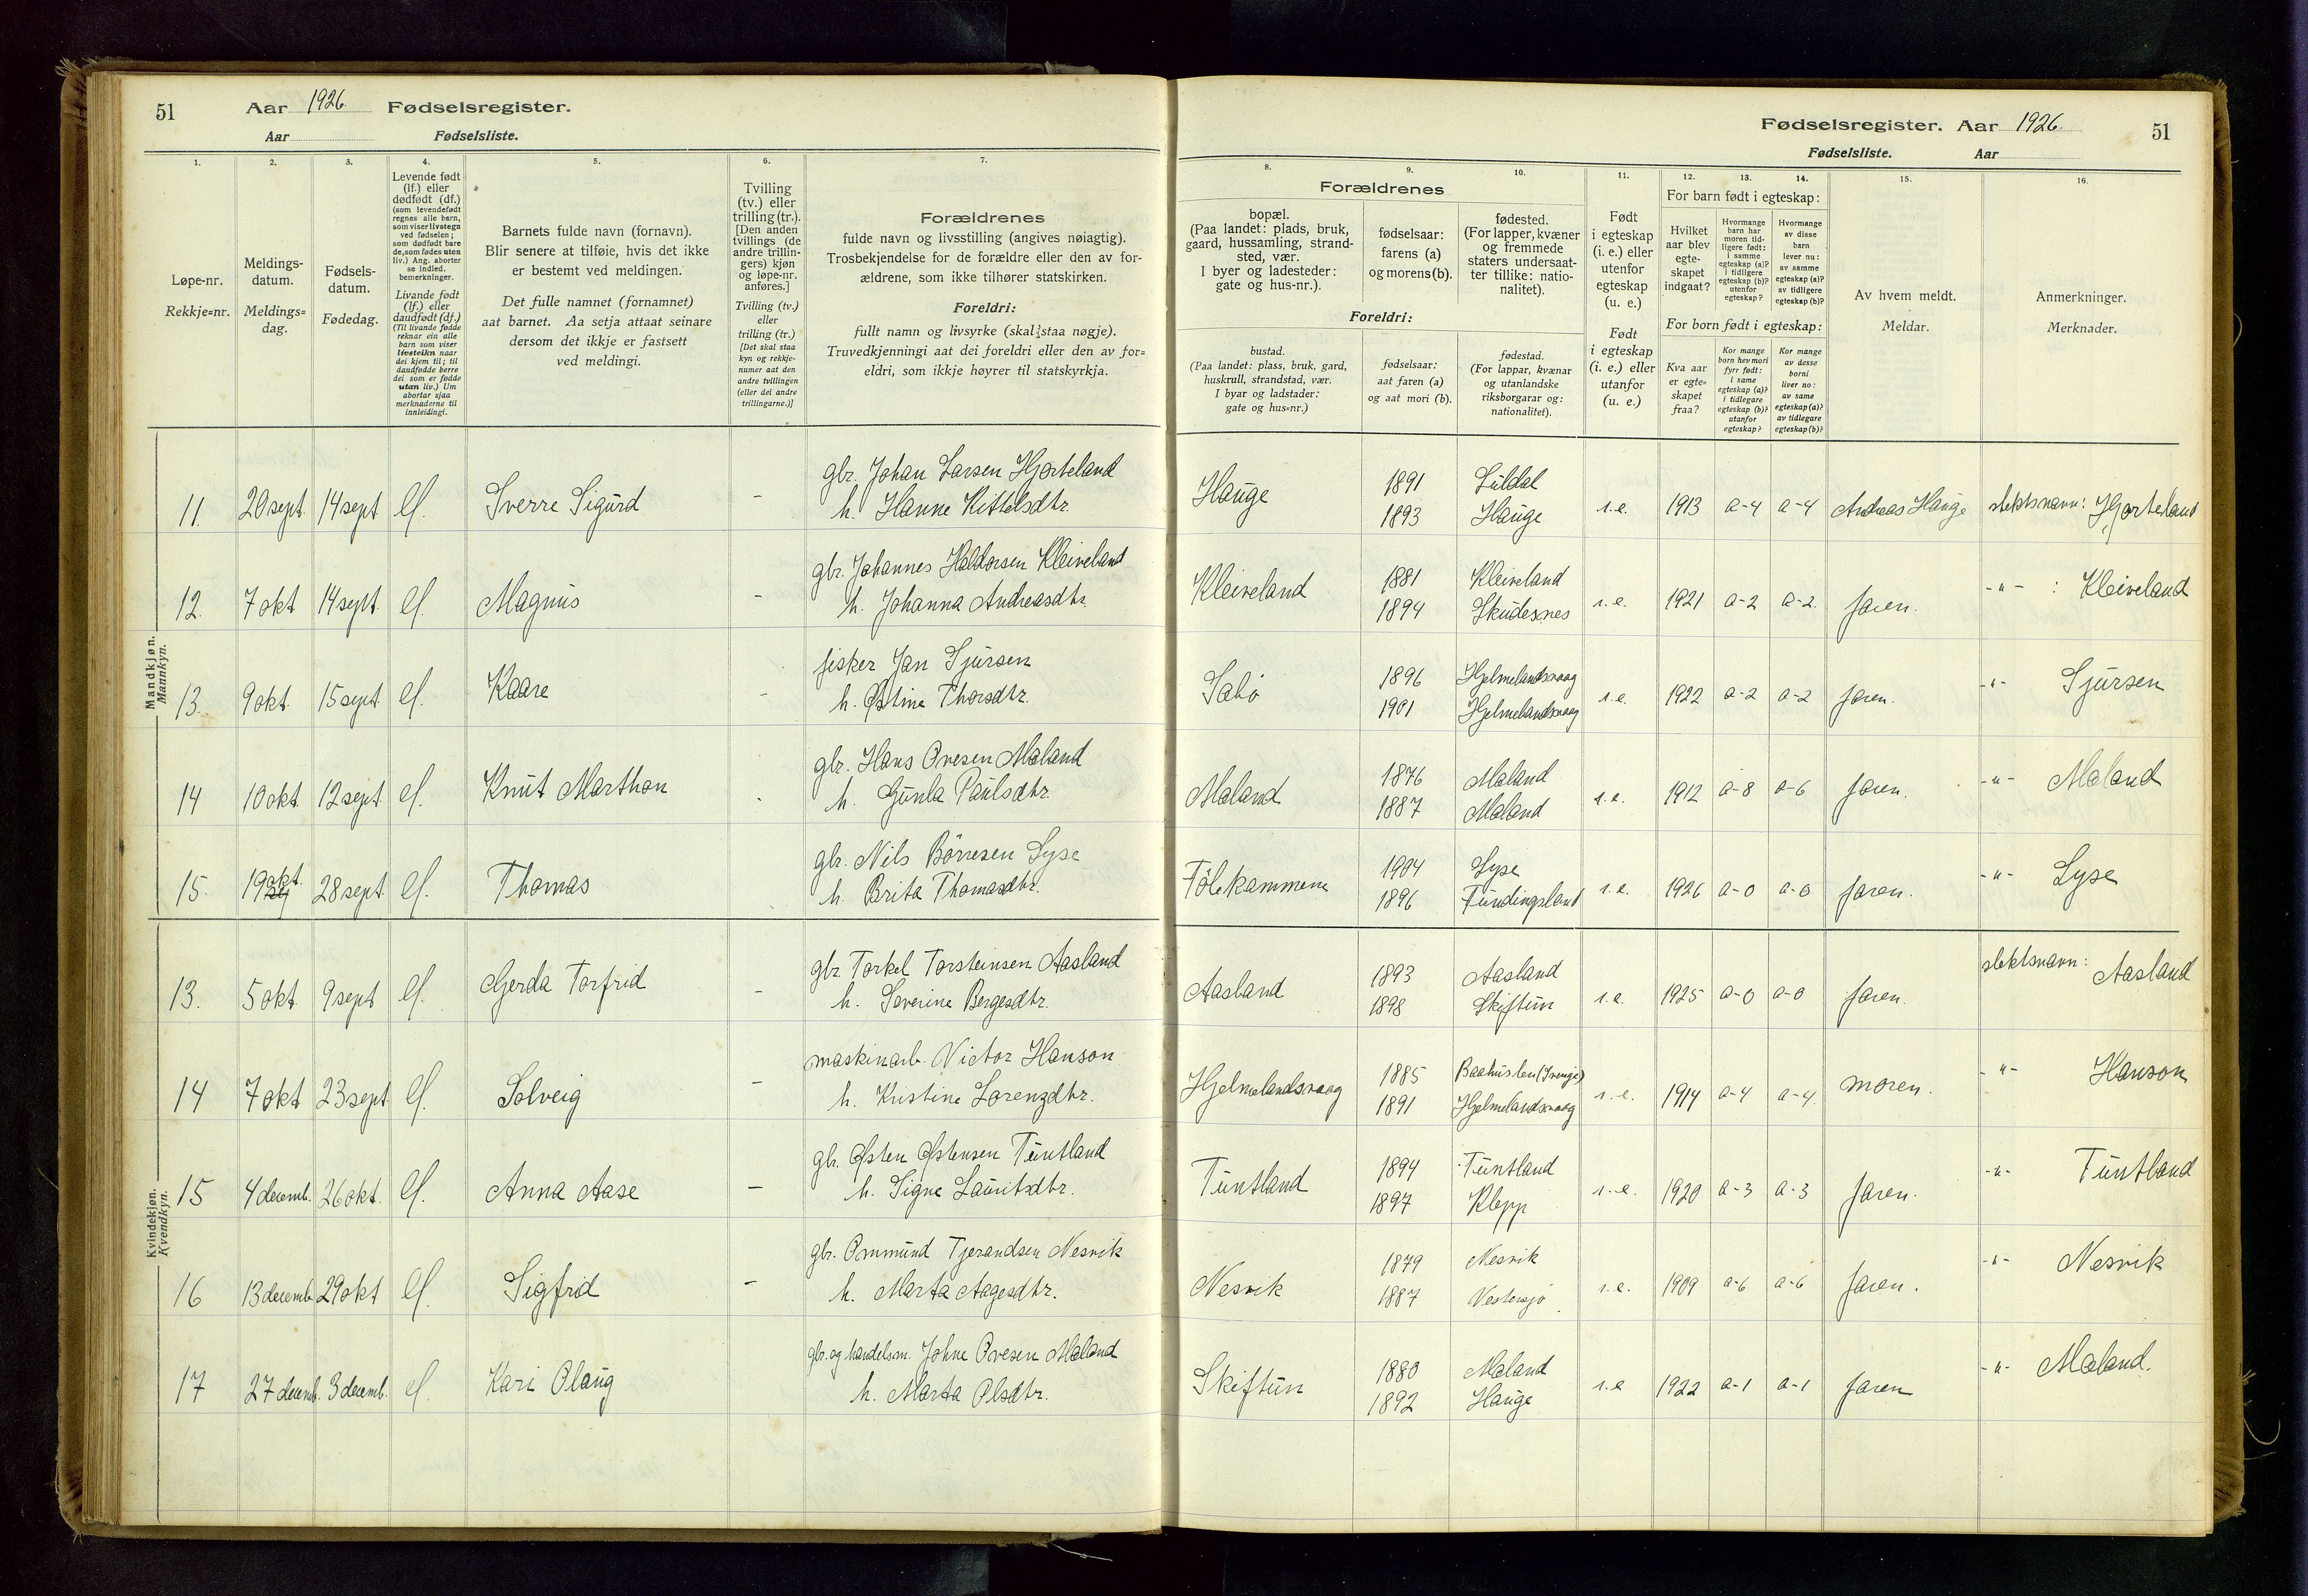 51 Aar 1926. Fødselsregister.
Aar Fødselsliste.
Fødselsregister. Aar 1926. 51
Fødselsliste. Aar
1. 2. 3. 4. 5. 6. 7. 8. 9. 10. 11. 12. 13. 14. 15. 16.
Løpe-nr.
Rekkje=nr.
Meldings-
datum.
Meldings=
dag.
Fødsels-
datum.
Fødedag.
Levende født
(lf.) eller
dødfødt (df.)
(som levendefødt
regnes alle barn,
som viser livstegn
ved fødselen;
som dødfødt bare
de, som fødes uten
liv.) Ang. aborter
se indled.
bemerkninger.
Livande født
(lf.) eller
daudfødt (df.)
(Til livande fødde
reknar ein alle
barn som viser
livsteikn naar
dei kjem til; til
daudfødde berre
dei som er fødde
utan liv.) Um
abortar sjaa
merknaderne til
innleidingi.
Barnets fulde navn (fornavn).
Blir senere at tilføie, hvis det ikke
er bestemt ved meldingen.
Det fulle namnet (fornamnet)
aat barnet. Aa setja attaat seinare
dersom det ikkje er fastsett
ved meldingi.
Tvilling
(tv.) eller
trilling (tr.).
[Den anden
tvillings (de
andre trillin-
gers) kjøn
og løpe-nr.
anføres.]
Tvilling (tv.)
eller
trilling (tr.)
[Det skal staa
kyn og rekkje-
numer aat den
andre tvillingen
(eller dei andre
trillingarne.)]
Forældrenes
fulde navn og livsstilling (angives nøiagtig).
Trosbekjendelse for de forældre eller den av for-
ældrene, som ikke tilhører statskirken.
Foreldri:
fullt namn og livsyrke (skal staa nøgje).
Truvedkjenningi aat dei foreldri eller den av for=
eldri, som ikkje høyrer til statskyrkja.
Forældrenes
bopæl.
(Paa landet: plads, bruk,
gaard, hussamling, strand-
sted, vær.
I byer og ladesteder:
gate og hus-nr.).
fødselsaar:
farens (a)
og morens (b).
fødested.
(For lapper, kvæner
og fremmede
staters undersaat-
ter tillike: natio-
nalitet).
Foreldri:
bustad.
(Paa landet: plass, bruk, gard,
huskrull, strandstad, vær.
I byar og ladstader:
gate og hus=nr.)
fødselsaar:
aat faren (a)
og aat mori (b).
fødestad.
(For lappar, kvænar
og utanlandske
riksborgarar og:
nationalitet).
Født
i egteskap
(i. e.) eller
utenfor
egteskap
(u. e.)
Født
i egteskap
(i. e.) eller
utanfor
(u. e.)
For barn født i egteskap:
Hvilket
aar blev
egte-
skapet
indgaat?
Hvormange
barn har
moren tid-
ligere født:
i samme
egteskap (a)?
i tidligere
egteskap (b)?
utenfor
egteskap?
Hvormange
av disse
barn
lever nu:
av samme
egteskap (a)?
av tidligere
egteskap (b)?
For born født i egteskap:
Kva aar
er egte=
skapet
fraa?
Kor mange
born hev mori
fyrr født:
i same
egteskap (a)?
i tidlegare
egteskap (b)?
utanfor
egteskap?
Kor mange
av desse
borni
liver no:
av same
egteskap (a)?
av tidlegare
egteskap (b)?
Av hvem meldt.
Meldar.
Anmerkninger.
Merknader.
Mandkjøn.
Mannkyn.
gbr. Johan Larsen Hjorteland 1891 Suldal
11. 20 sept. 14 sept lf. Sverre Sigurd - h. Hanne Kittelsdtr. Hauge 1893 Hauge i.e. 1913 a-4 a-4 Andreas Hauge slektsnavn: Hjorteland
gbr. Johannes Haldorsen Kleiveland 1881 Kleiveland
12. 7 okt 14 sept. lf. Magnus - h. Johanna Andreasdtr. Kleiveland 1894 Skudesnes i.e. 1921 a-2 a-2. faren. -"- : Kleiveland
fisker Jan Sjursen 1896 Hjelmelandsvaag
13. 9 okt. 15 sept. lf. Kaare - h. Østine Thorsdtr. Sabø 1901 Hjelmelandsvaag i.e. 1922 a-2 a-2 faren. -"- Sjursen
gbr. Hans Ovesen Mæland 1876 Mæland
14 10 okt. 12 sept lf. Knut Marthon - h. Gunla Paulsdtr. Mæland 1887 Mæland i.e. 1912 a-8 a-6 faren. -"- Mæland
gbr. Nils Børresen Lyse 1904 Lyse
15. 19 okt. 28 sept. lf. Thomas h. Brita Thomasdtr. Fölekammene 1896 Tundingsland i.e. 1926 a-0 a-0 faren. -"- Lyse
Kvindekjøn.
Kvendkyn.
gbr Torkel Torsteinsen Aasland 1893 Aasland
13. 5 okt. 9 sept lf. Gjerda Torfrid - h. Severine Bergesdtr. Aasland 1898 Skiftun i.e. 1925 a-0 a-0 faren. slektsnavn: Aasland
maskinarb. Victor Hanson 1885 Baahuslen (Sverige)
14 7 okt 23 sept lf. Solveig - h. Kristine Lorenzdtr. Hjelmelandsvaag 1891 Hjelmelandsvaag i.e. 1914 a-4 a-4. moren. -"- Hanson
gbr. Østen Østensen Tuntland 1894 Tuntland
15 4 decemb. 26 okt. lf. Anna Aase - h. Signe Lauritsdtr. Tuntland 1897 Klepp i.e. 1920 a-3 a-3 faren. -"- Tuntland
gbr. Ommund Tjerandsen Nesvik 1879 Nesvik
16 13 decemb 29 okt lf. Sigfrid - h. Marta Aagesdtr. Nesvik 1887 Vestersjø. i.e. 1909 a-6 a-6 faren. -"- Nesvik
gbr. og handelsm. Johne Ovesen Mæland 1880 Mæland
17 27 decemb. 3 decemb. lf. Kari Olaug h. Marta Olsdtr. Skiftun 1892 Hauge i.e 1922 a-1 a-1 faren -"- Mæland.